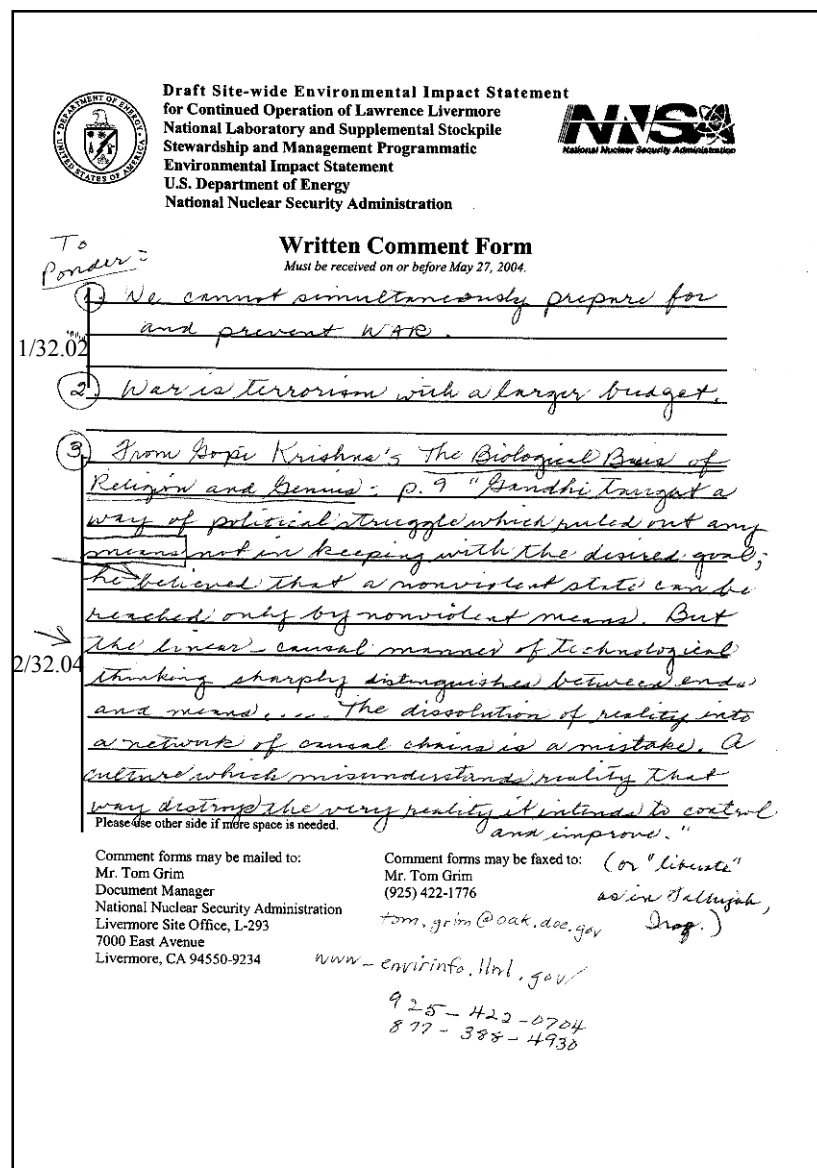 Draft Site-wide Environmental Impact Statement
for Continued Operation of Lawrence Livermore
National Laboratory and Supplemental Stockpile
Stewardship and Management Programmatic
Environmental Impact Statement
U.S. Department of Energy
National Nuclear Security Administration
DEPARTMENT OF ENERGY
UNITED STATES OF AMERICA
NNSA
National Nuclear Security Administration
To
Ponder =
Written Comment Form
Must be received on or before May 27, 2004.
1. We cannot simultaneously prepare for
and prevent WAR.
1/32.02
2. War is terrorism with a larger budget.
3. From Gopi Krishna's The Biological Basis of
Religion and Genius: p. 9 "Gandhi taught a
way of political struggle which ruled out any
means not in keeping with the desired goal;
he believed that a nonviolent state can be
reached only by nonviolent means. But
the linear-causal manner of technological
2/32.04
thinking sharply distinguishes between ends
and means.... The dissolution of reality into
a network of causal chains is a mistake. A
culture which misunderstands reality that
way distroys the very reality it intends to control
and improve."
Please use other side if more space is needed.
(or "liberate"
as in Fallujah,
Iraq.)
Comment forms may be mailed to:
Mr. Tom Grim
Document Manager
National Nuclear Security Administration
Livermore Site Office, L-293
7000 East Avenue
Livermore, CA 94550-9234
Comment forms may be faxed to:
Mr. Tom Grim
(925) 422-1776
tom.grim@oak.doe.gov
www-envirinfo.llnl.gov/
925-422-0704
877-388-4930